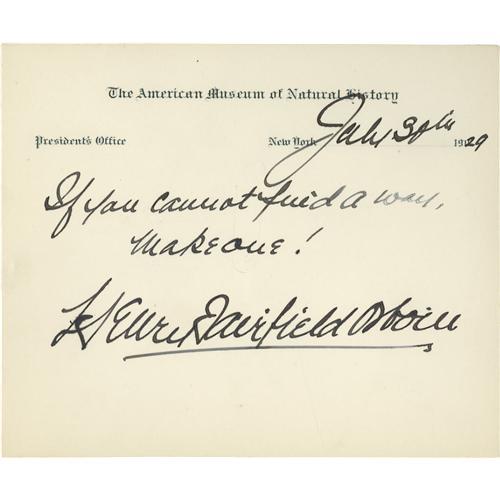 The American Museum of Natural History
President's Office New York July 30th 1929
If you cannot find a way,
make one!
Henry Fairfield Osborn